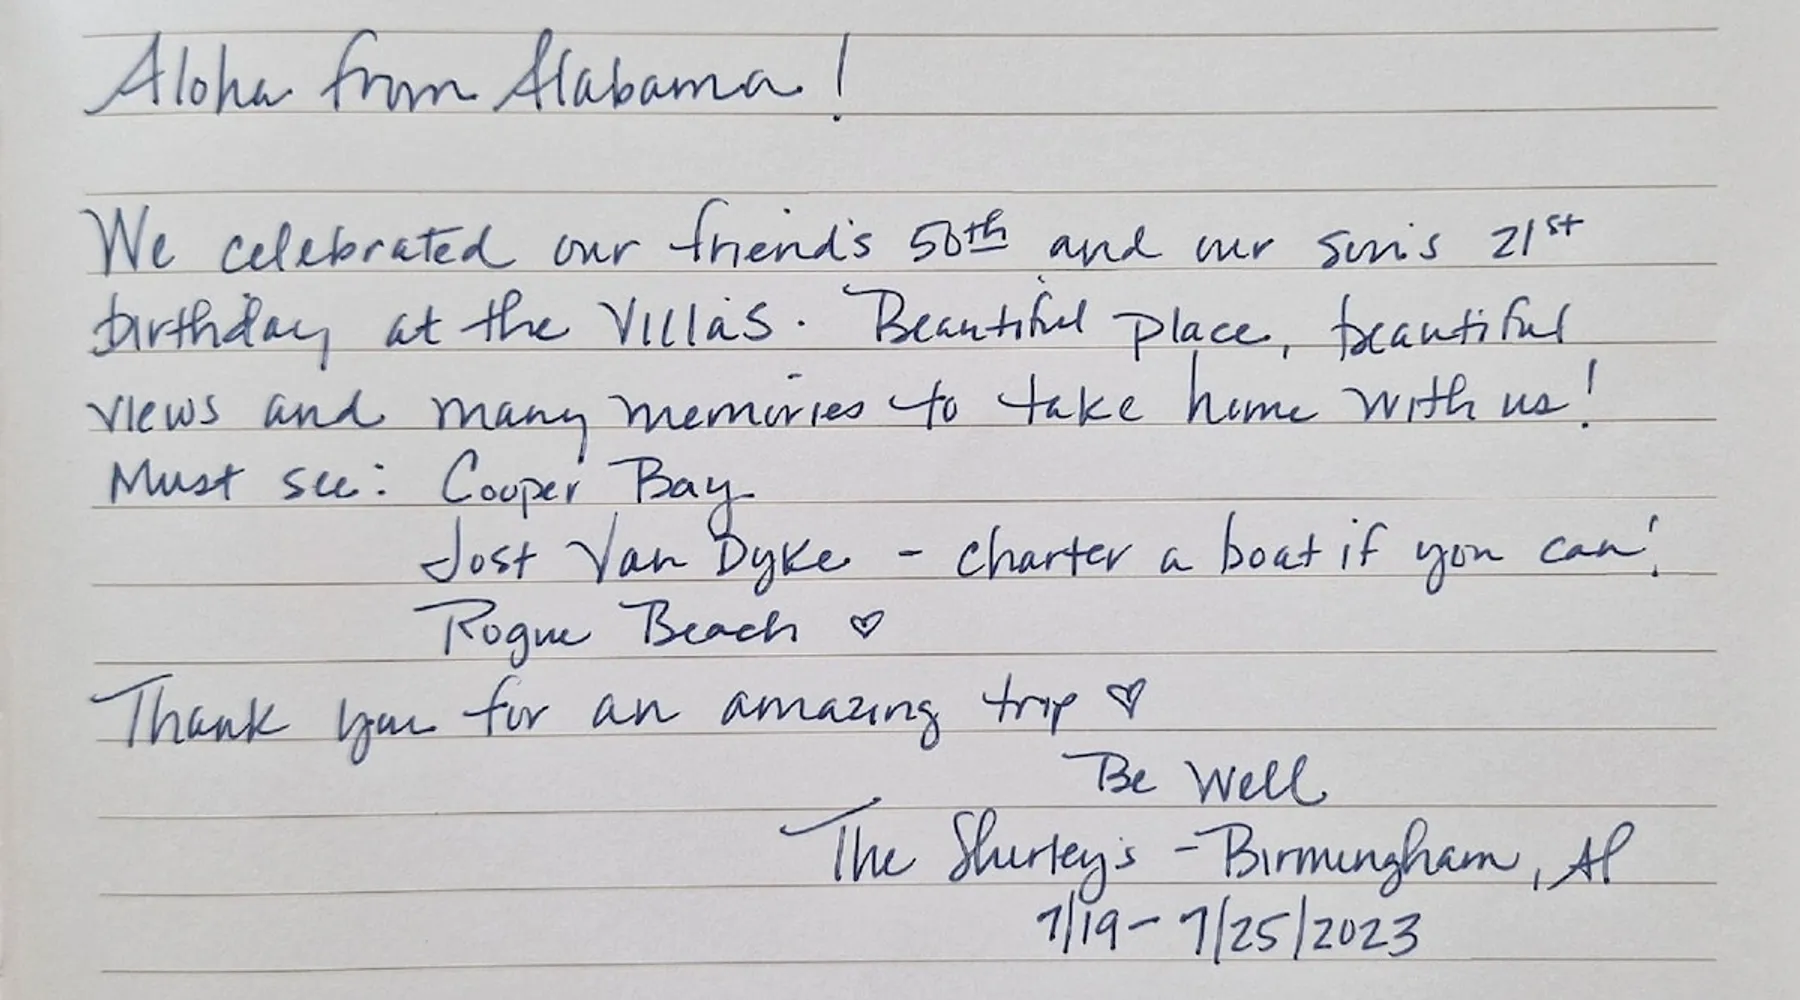 Aloha from Alabama!
We celebrated our friend's 50th and our son's 21st
birthday at the Villas. Beautiful place, beautiful
views and many memories to take home with us!
Must see: Cooper Bay
Jost Van Dyke - charter a boat if you can!
Rogue Beach ♡
Thank you for an amazing trip ♡
Be Well
The Shurley's - Birmingham, Al
7/19 - 7/25/2023